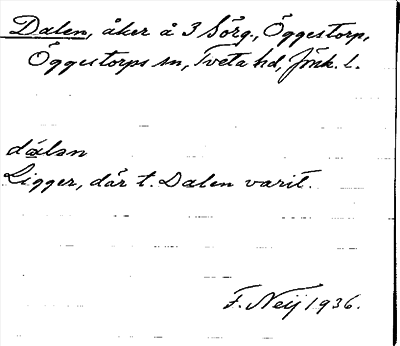 Dalen, åker å 3 Sörg., Öggestorp,
Öggestorps sn, Tveta hd, Jönk. l.
dálən
Ligger, där t. Dalen varit.
F. Neij 1936.